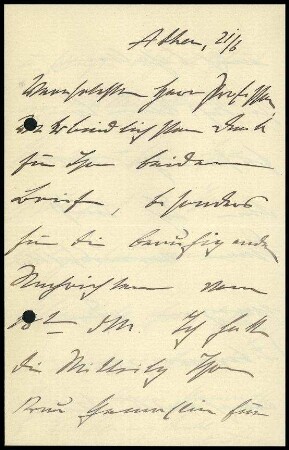 Athen, 21/6
Verehrtester Herr Professor
Verbindlichsten Dank
für Ihre beiden
Briefe, besonders
für die beruhigenden
Nachrichten vom
18t dM. Ich hatte
die Mitteilung Ihrer
Frau Gemahlin für